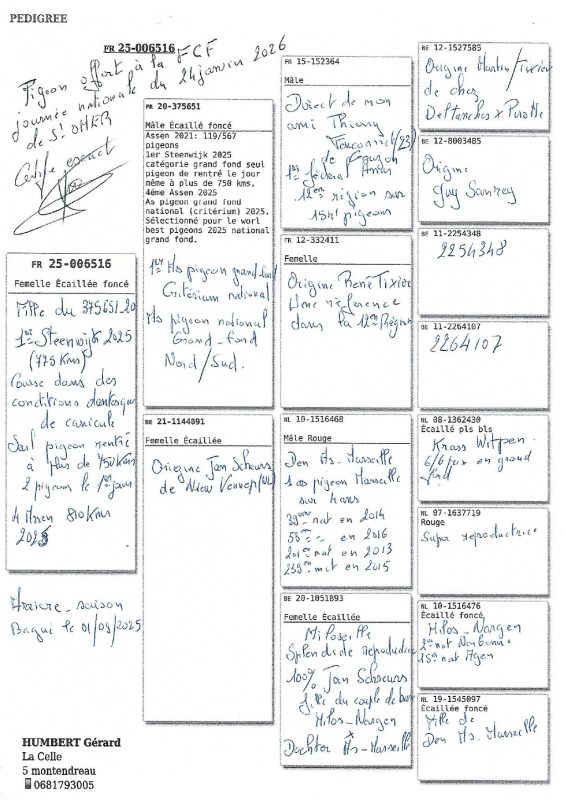 PEDIGREE
FR 25-006516
Pigeon offert à la FCF
journée nationale du 24 janvier 2026
de St OMER
FR 25-006516
Femelle Écaillée foncé
Fille du 375651.20
1er Steenwijk 2025
(775 Kms)
Course dans des
conditions dantesque
de canicule
Seul pigeon rentré
à plus de 750 Kms
2 pigeons le 1er jour
4 Assen 810 Kms
2025
Arrière-saison
Bagué le 01/09/2025
HUMBERT Gérard
La Celle
5 montendreau
0681793005
FR 20-375651
Mâle Écaillé foncé
Assen 2021: 119/567
pigeons
1er Steenwijk 2025
catégorie grand fond seul
pigeon de rentré le jour
même à plus de 750 kms.
4éme Assen 2025
As pigeon grand fond
national (critérium) 2025.
Sélectionné pour le worl
best pigeons 2025 national
grand fond.
1er As pigeon grand-fond
Critérium national
As pigeon national
Grand-fond
Nord/Sud.
BE 21-1144091
Femelle Écaillée
Origine Jan Scheurs
de Nieuw Vennep (NL)
FR 15-152364
Mâle
Direct de mon
ami Thierry
(23)
1er fédéral
12ème région sur
pigeons
FR 12-332411
Femelle
Origine René Tixier
Une référence
dans la 12ème Région
NL 10-1516468
Mâle Rouge
Den As-Marseille
1 as pigeon Marseille
sur 4 ans
nat en 2014
53ème en 2016
nat en 2013
nat en 2015
BE 20-1051893
Femelle Écaillée
Miloseille
Splendide reproductrice
100% Jan Scheurs
fille du couple de base
Milos-Nargen
x
Dochter As-Marseille
BE 12-1527585
Origine Martin/Tixier
de chez
Deltanches x Pirotte
BE 12-8003485
Origine
Guy
BE 11-2254348
2254348
BE 11-2264107
2264107
NL 08-1362430
Écaillé pls bls
Krass Witpen
6/6 px en grand
fond
NL 07-1637719
Rouge
Super reproductrice
NL 10-1516476
Écaillé foncé
Milos-Nargen
2e nat Narbonne
15e nat Agen
NL 19-1545097
Écaillée foncé
Fille de
Den As-Marseille